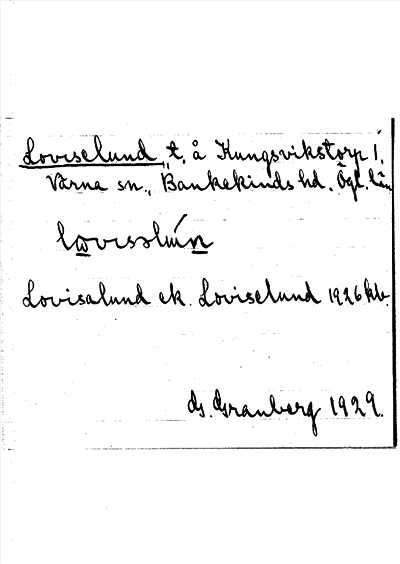 Loviselund, t. å Kungsvikstorp 1,
Värna sn., Bankekinds hd. Ögl. län
Lovisalund ek. Loviselund 1926 kb.
G. Granberg 1929.